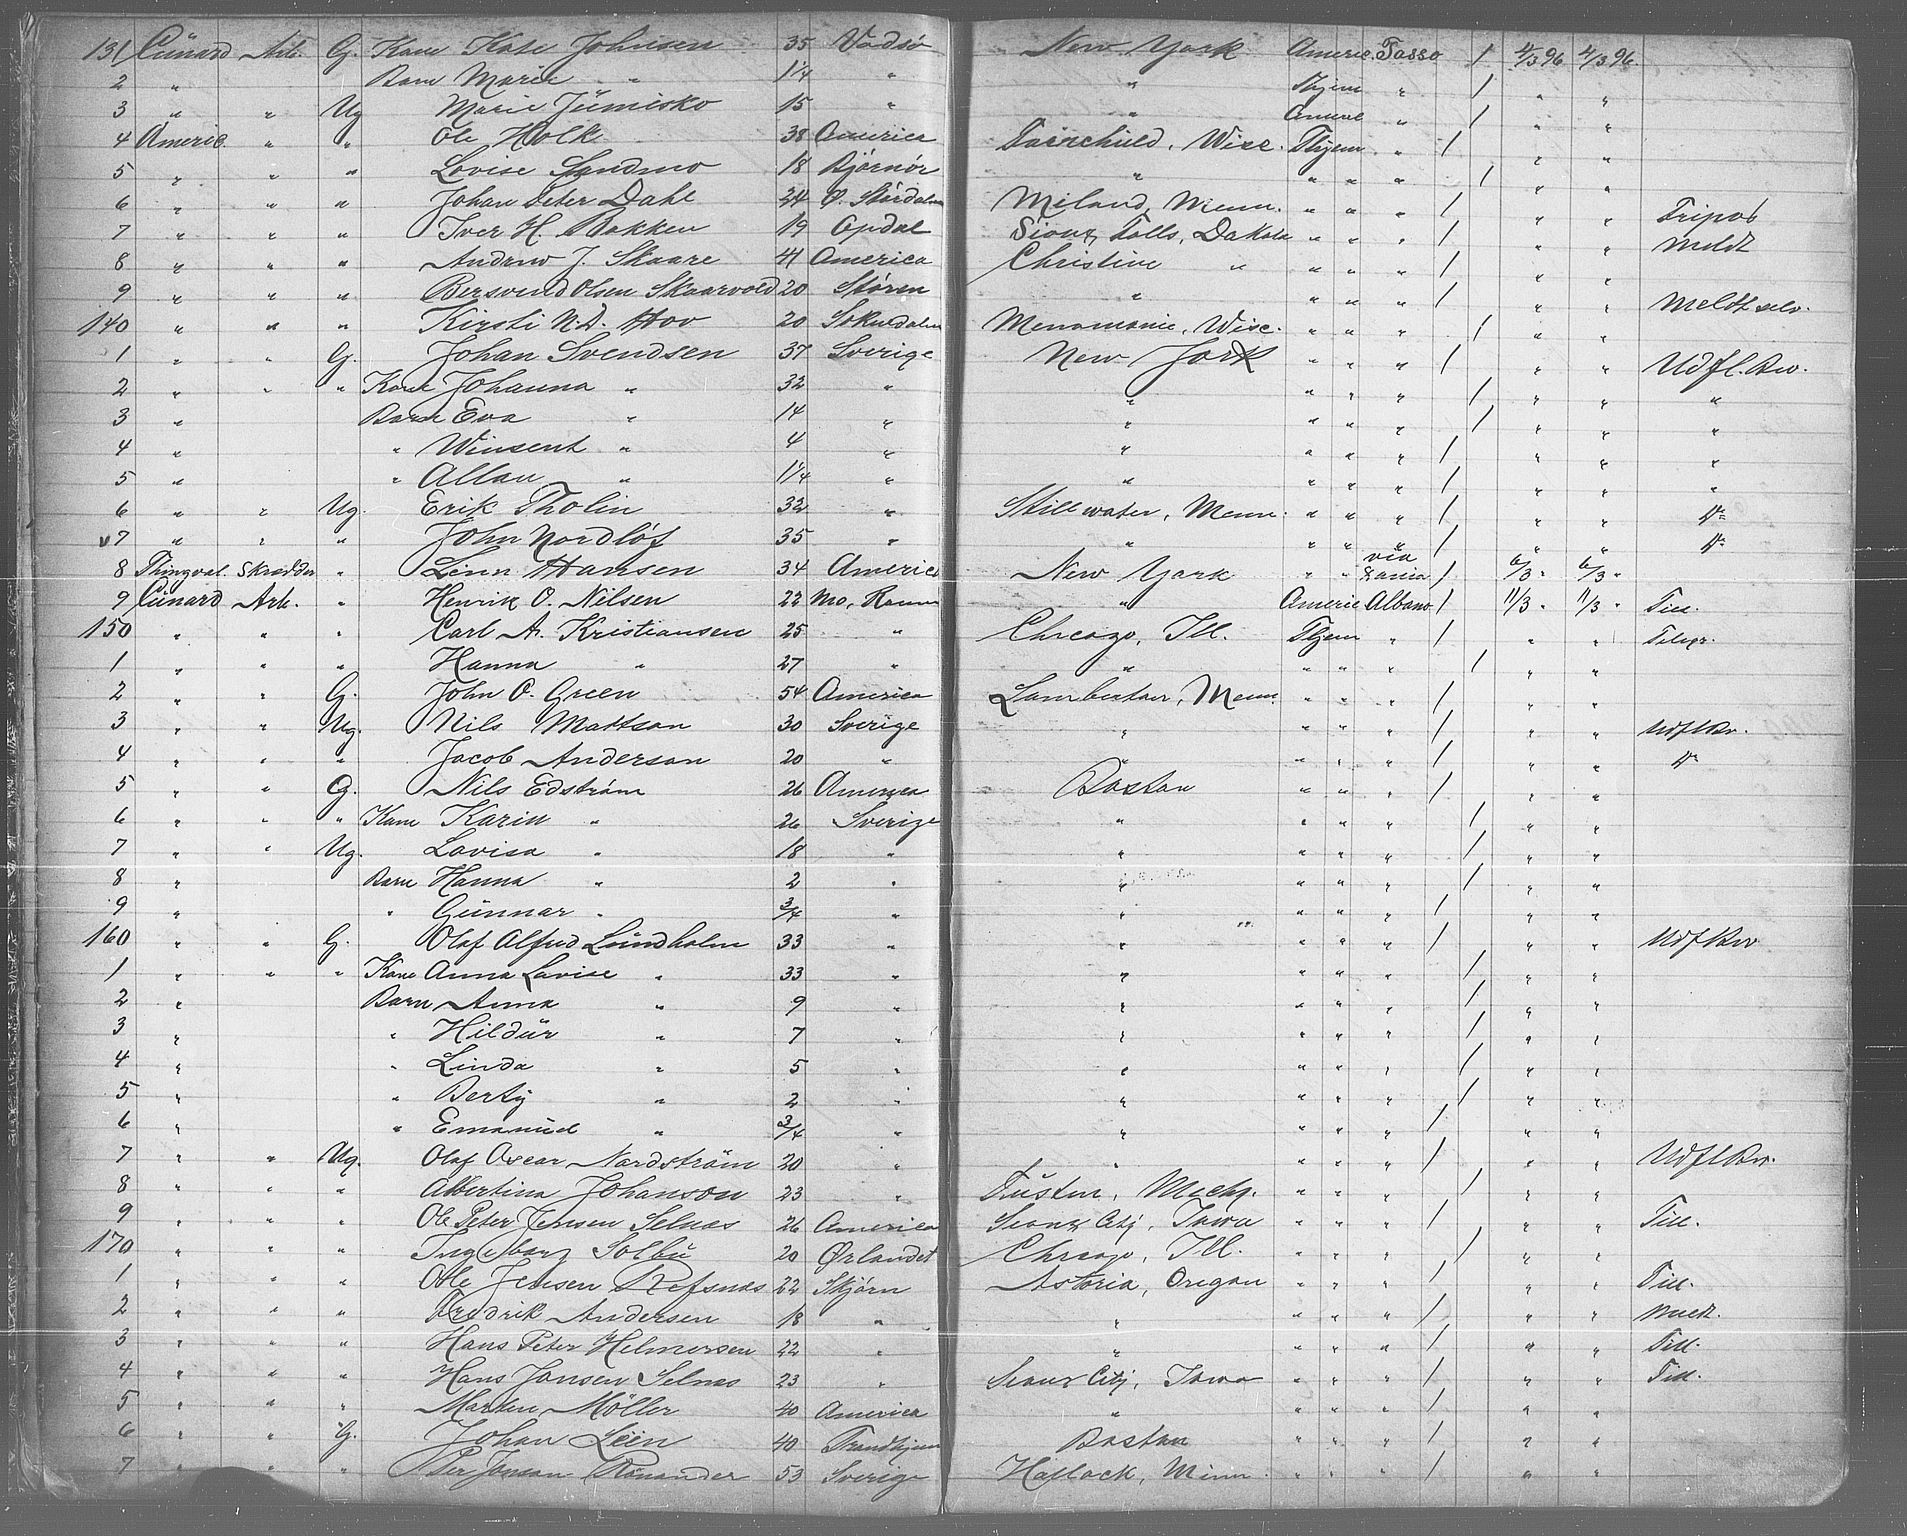 131 Cünard Arb. G. Kone Kate Johnsen 35 Vadsø New York Americ. Tasso / 4/3 96 4/3 96.
2 " Barn Marie " 1 1/4 " " Thjem " / " "
3 " " Ug Marie Jümisko 15 " " " / " "
4 Americ. " " Ole Holk 38 America Fairchield, Wisc. Thjem " / " "
5 " " " Lovise Sandmo 18 Bjørnør " " " " / " "
6 " " " Johan Peter Dahl 24 Ø. Størdalen Miland, Menn. " " " / " "
7 " " " Iver H. Bakken 19 Opdal Sioux Falls, Dakota " " " / " " Meldt
8 " " " Andrew J. Skaare 41 America Christine " " " " / " "
9 " " " Bersvend Olsen Skaarvold 20 Støren " " " " / " " Meldt selv.
140 " " " Kirsti N.D. Hov 20 Soknedalen Menomonie, Wisc. " " " / " "
1 " " G. Johan Svendsen 37 Sverige New York " " " / " " Udfl. Bev.
2 " " " Kone Johanna " 32 " " " " " / " " "
3 " Barn Eva " 14 " " " " " / " " "
4 " " Winsent " 4 " " " " " / " " "
5 " " Allan " 1 1/4 " " " " " / " " "
6 " " Ug. Erik Tholin 32 " Stillwater, Menn. " " " / " " Do
7 " " " John Nordløf 35 " " " " " / " " Do
8 Thingval. Skrædder " Linn Hansen 34 America New York " " via / 6/3 " 6/3 "
9 Cünard Arb. " Henrik O. Nilsen 22 Mo, Ranen " Americ Albano / 11/3 " 11/3 " Till.
150 " " " Carl A. Kristiansen 25 " Chicago, Ill. Thjem " / " "
1 " " " Hanna " 27 " " " " " / " "
2 " " G. John O. Green 54 America Lamberton, Menn. " " " / " "
3 " " Ug. Nils Mattson 30 Sverige " " " " / " " Udfl Bv.
4 " " " Jacob Anderson 20 " " " " " / " " Do
5 " " G. Nils Edstrøm 26 America Boston " " " / " "
6 " " " Kone Karin " 26 Sverige " " " " / " "
7 " " Ug. Lovisa " 18 " " " " " / " "
8 " Barn Hanna " 2 " " " " " / " "
9 " " Günnar " 3/4 " " " " " / " "
160 " " G. Olaf Alfred Lündholm 33 " " " " " / " " Udfl Bev
1 " " " Kone Anna Lovise " 33 " " " " " / " "
2 " Barn Anna " 9 " " " " " / " "
3 " " Hildür " 7 " " " " " / " "
4 " " Linda " 5 " " " " " / " "
5 " " Berty " 2 " " " " " / " "
6 " " Emanüel " 3/4 " " " " " / " "
7 " " Ug. Olaf Oscar Nordstrøm 20 " " " " " / " " Udfl Bev.
8 " " " Albertina Johanson 23 " Tüstin, Mechg. " " " / " "
9 " " " Ole Peter Jensen Selnæs 26 America Sioux City, Iowa " " " / " " Till.
170 " " " Ingeborg Solbü 20 Ørlandet Chicago, Ill. " " " / " "
1 " " " Ole Jensen Refsnæs 22 Skjørn Astoria, Oregon " " " / " " Till.
2 " " " Fredrik Andersen 18 " " " " " / " " Meldt.
3 " " " Hans Peter Helmersen 22 " " " " " / " " Till.
4 " " " Hans Jensen Selnæs 23 " Sioux City, Iowa " " " / " " Till.
5 " " " Marten Möller 40 America " " " " / " "
6 " " G. Johan Leën 40 Trondhjem Boston " " " / " "
7 " " " Per Jonson 53 Sverige Hallock, Minn. " " " / " "